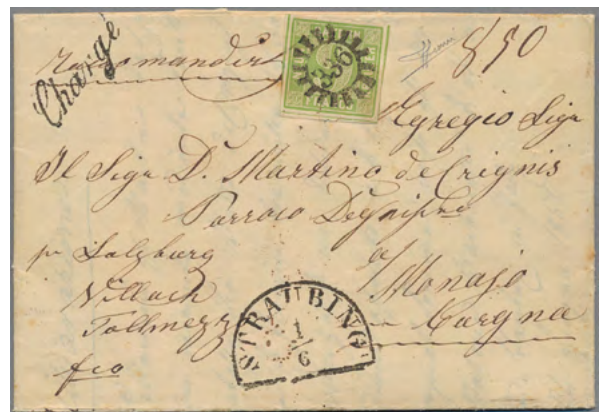 Chargé
Recomandirt
850
336
Egregio Sigr
Il Sigr D. Martino de Crignis
Parroco
pr Salzburg
Villach
Tollmezzo
fco
a
Monajo
Cargna
STRAUBING
1
6